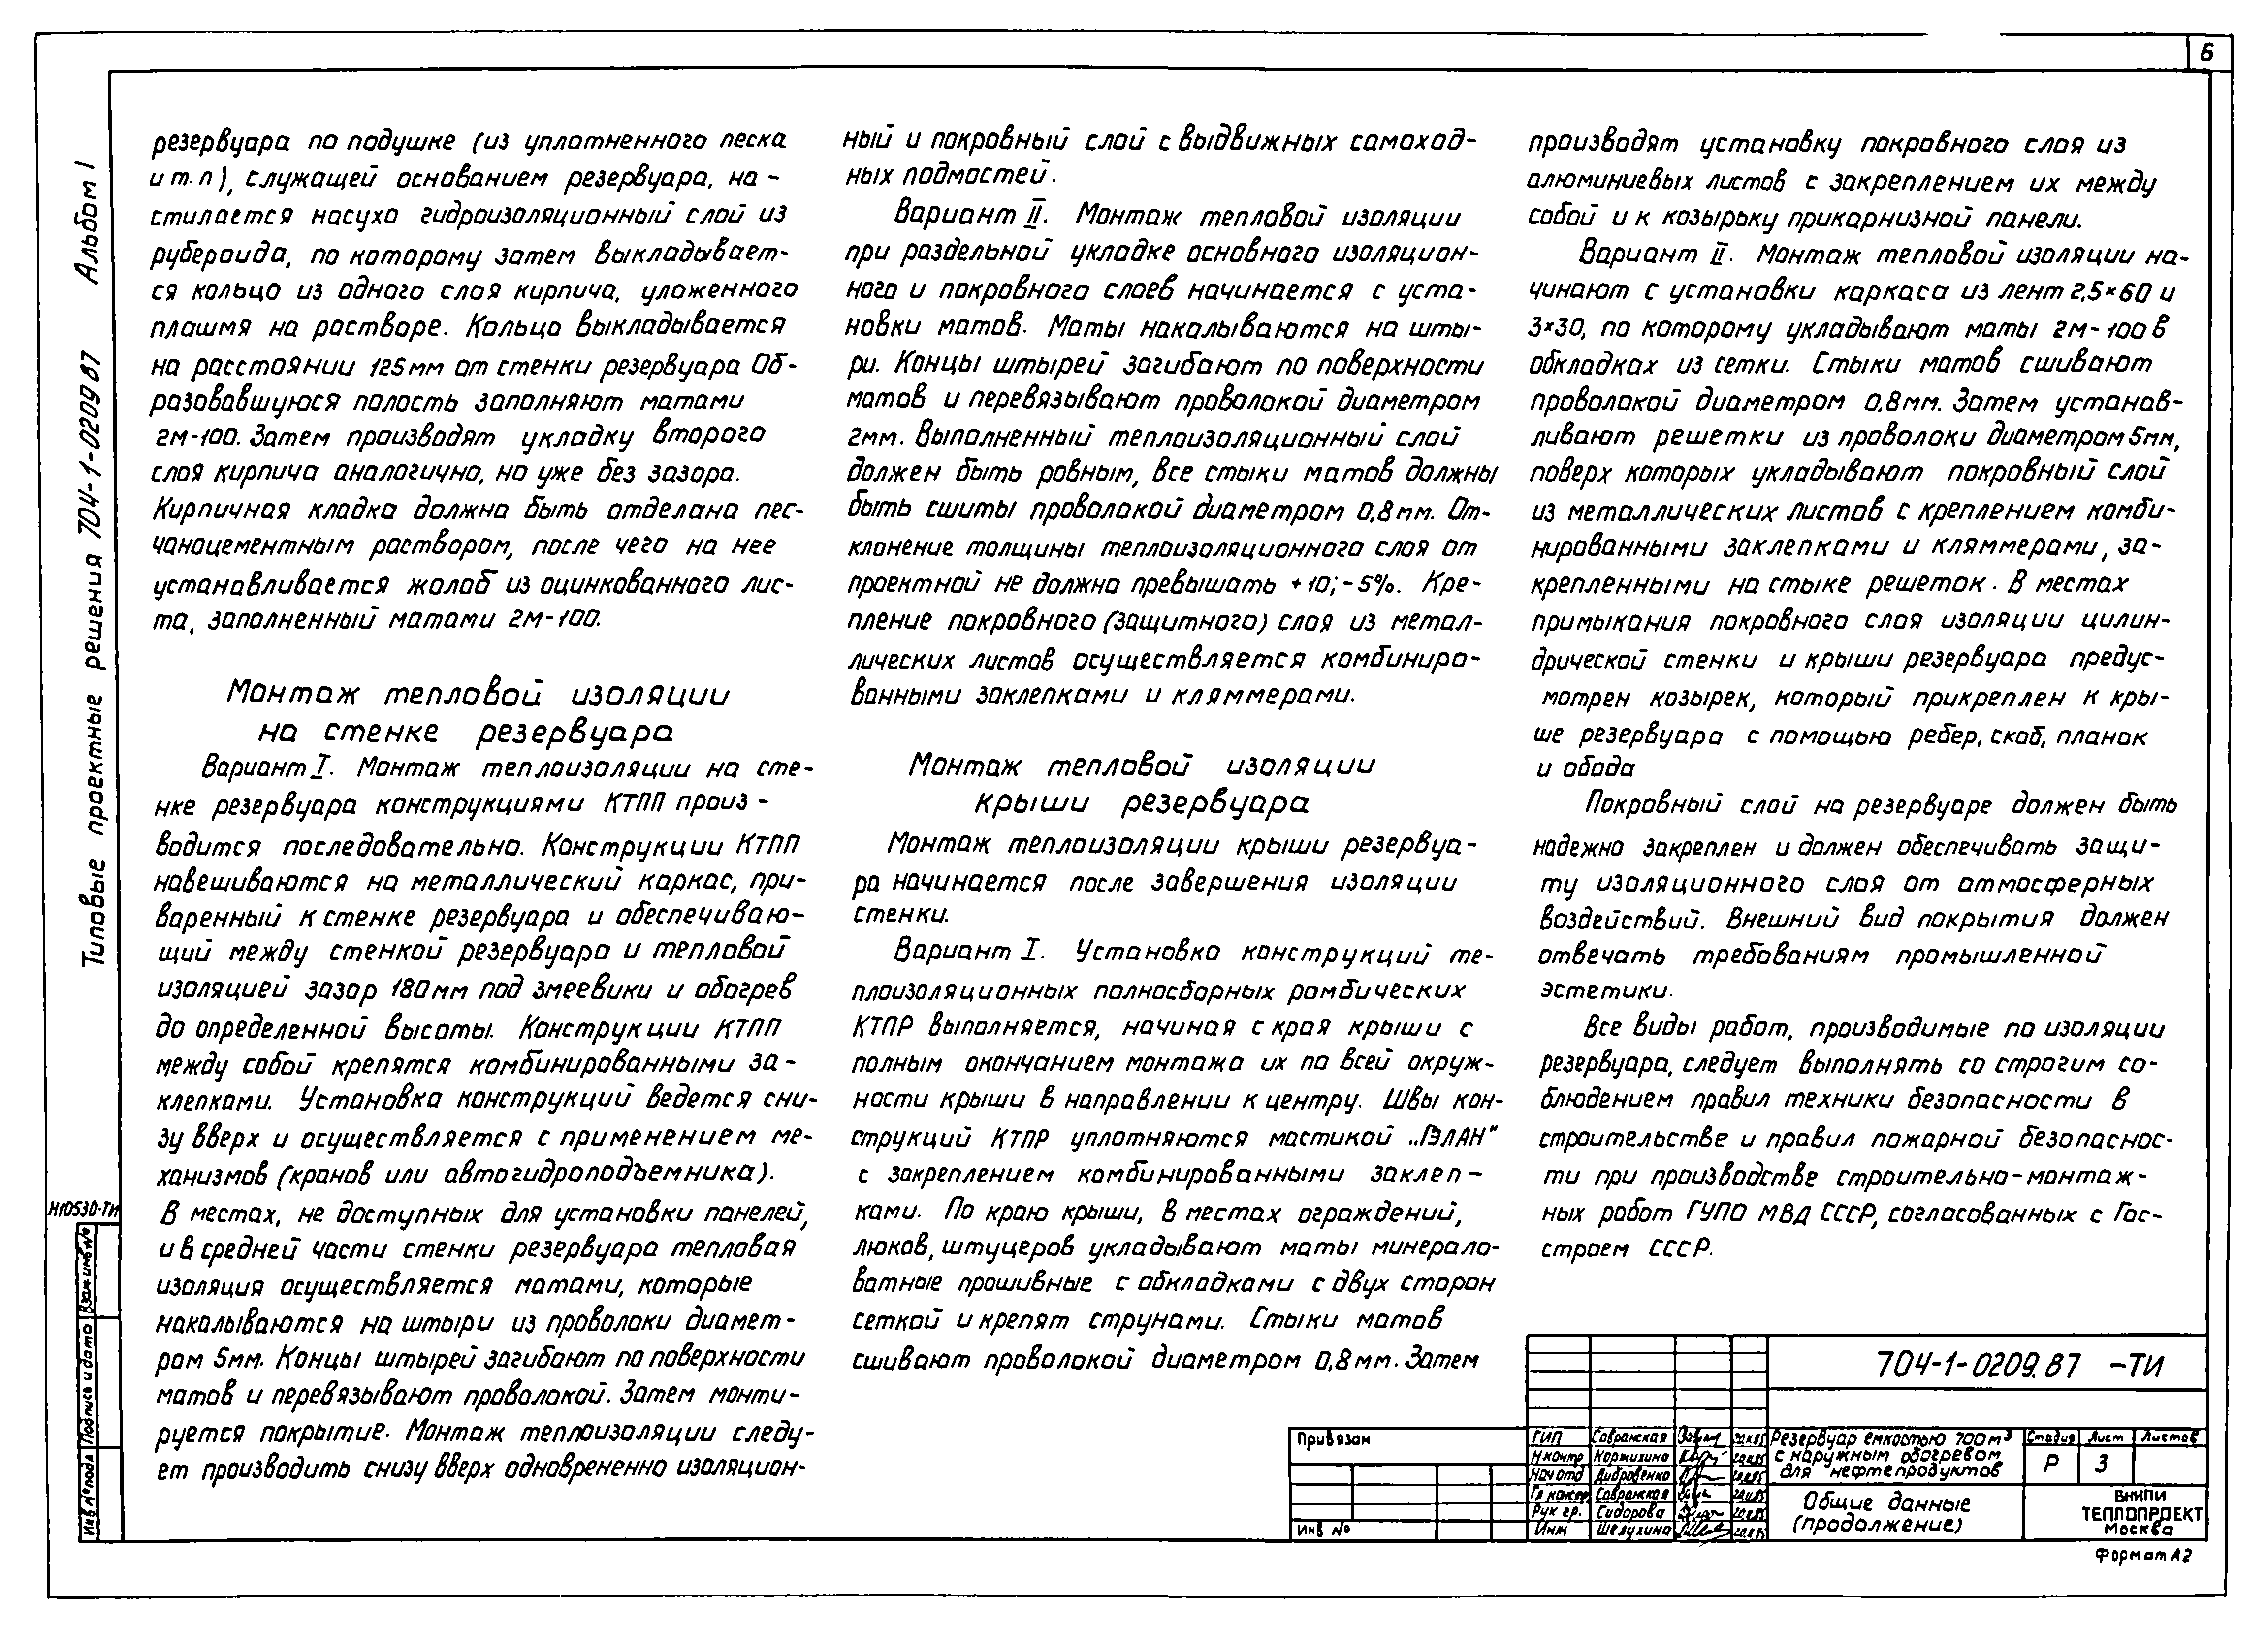 6
Альбом I
Типовые проектные решения 704-1-0209 87
резервуара по подушке (из уплотненного песка
и т.п), служащей основанием резервуара, на-
стилается насухо гидроизоляционный слой из
рубероида, по которому затем выкладывает-
ся кольцо из одного слоя кирпича, уложенного
плашмя на растворе. Кольцо выкладывается
на расстоянии 125мм от стенки резервуара Об-
разовавшуюся полость заполняют матами
2м-100. Затем производят укладку второго
слоя кирпича аналогично, но уже без зазора.
Кирпичная кладка должна быть отделана пес-
чаноцементным раствором, после чего на нее
устанавливается желоб из оцинкованного лис-
та, заполненный матами 2М-100.
Монтаж тепловой изоляции
на стенке резервуара
Вариант I. Монтаж теплоизоляции на сте-
нке резервуара конструкциями КТПП произ-
водится последовательно. Конструкции КТПП
навешиваются на металлический каркас, при-
варенный к стенке резервуара и обеспечиваю-
щий между стенкой резервуара и тепловой
изоляцией зазор 180мм под змеевики и обогрев
до определенной высоты. Конструкции КТПП
между собой крепятся комбинированными за-
клепками. Установка конструкций ведется сни-
зу вверх и осуществляется с применением ме-
ханизмов (кранов или автогидроподъемника).
В местах, не доступных для установки панелей,
и в средней части стенки резервуара тепловая
изоляция осуществляется матами, которые
накалываются на штыри из проволоки диамет-
ром 5мм. Концы штырей загибают по поверхности
матов и перевязывают проволокой. Затем монти-
руется покрытие. Монтаж теплоизоляции следу-
ет производить снизу вверх одновременно изоляцион-
ный и покровный слой с выдвижных самоход-
ных подмостей.
Вариант II. Монтаж тепловой изоляции
при раздельной укладке основного изоляцион-
ного и покровного слоев начинается с уста-
новки матов. Маты накалываются на шты-
ри. Концы штырей загибают по поверхности
матов и перевязывают проволокой диаметром
2мм. Выполненный теплоизоляционный слой
должен быть ровным, все стыки матов должны
быть сшиты проволокой диаметром 0,8мм. От-
клонение толщины теплоизоляционного слоя от
проектной не должно превышать +10;-5%. Кре-
пление покровного (защитного) слоя из метал-
лических листов осуществляется комбиниро-
ванными заклепками и кляммерами.
Монтаж тепловой изоляции
крыши резервуара
Монтаж теплоизоляции крыши резервуа-
ра начинается после завершения изоляции
стенки.
Вариант I. Установка конструкций те-
плоизоляционных полносборных ромбических
КТПР выполняется, начиная с края крыши с
полным окончанием монтажа их по всей окруж-
ности крыши в направлении к центру. Швы кон-
струкций КТПР уплотняются мастикой „ГЭЛАН"
с закреплением комбинированными заклеп-
ками. По краю крыши, в местах ограждений,
люков, штуцеров укладывают маты минерало-
ватные прошивные с обкладками с двух сторон
сеткой и крепят струнами. Стыки матов
сшивают проволокой диаметром 0,8мм. Затем
производят установку покровного слоя из
алюминиевых листов с закреплением их между
собой и к козырьку прикарнизной панели.
Вариант II. Монтаж тепловой изоляции на-
чинают с установки каркаса из лент 2,5×60 и
3×30, по которому укладывают маты 2М-100 в
обкладках из сетки. Стыки матов сшивают
проволокой диаметром 0,8мм. Затем устанав-
ливают решетки из проволоки диаметром 5мм,
поверх которых укладывают покровный слой
из металлических листов с креплением комби-
нированными заклепками и кляммерами, за-
крепленными на стыке решеток. В местах
примыкания покровного слоя изоляции цилин-
дрической стенки и крыши резервуара предус-
мотрен козырек, который прикреплен к кры-
ше резервуара с помощью ребер, скоб, планок
и обода
Покровный слой на резервуаре должен быть
надежно закреплен и должен обеспечивать защи-
ту изоляционного слоя от атмосферных
воздействий. Внешний вид покрытия должен
отвечать требованиям промышленной
эстетики.
Все виды работ, производимые по изоляции
резервуара, следует выполнять со строгим со-
блюдением правил техники безопасности в
строительстве и правил пожарной безопаснос-
ти при производстве строительно-монтаж-
ных работ ГУПО МВД СССР, согласованных с Гос-
строем СССР.
Н10530-ТИ
Взам.инв.№
Подпись и дата
Инв № подл
Привязан
Инв №
ГИП Савранская
Н.контр Коржихина
Нач отд Дибровенко
Гл констр. Савранская
Рук гр. Сидорова
Инж Шелухина
704-1-0209.87 -ТИ
Резервуар емкостью 700м³
с наружным обогревом
для нефтепродуктов
Стадия Лист Листов
Р 3
Общие данные
(продолжение)
ВНИПИ
ТЕПЛОПРОЕКТ
Москва
Формат А2